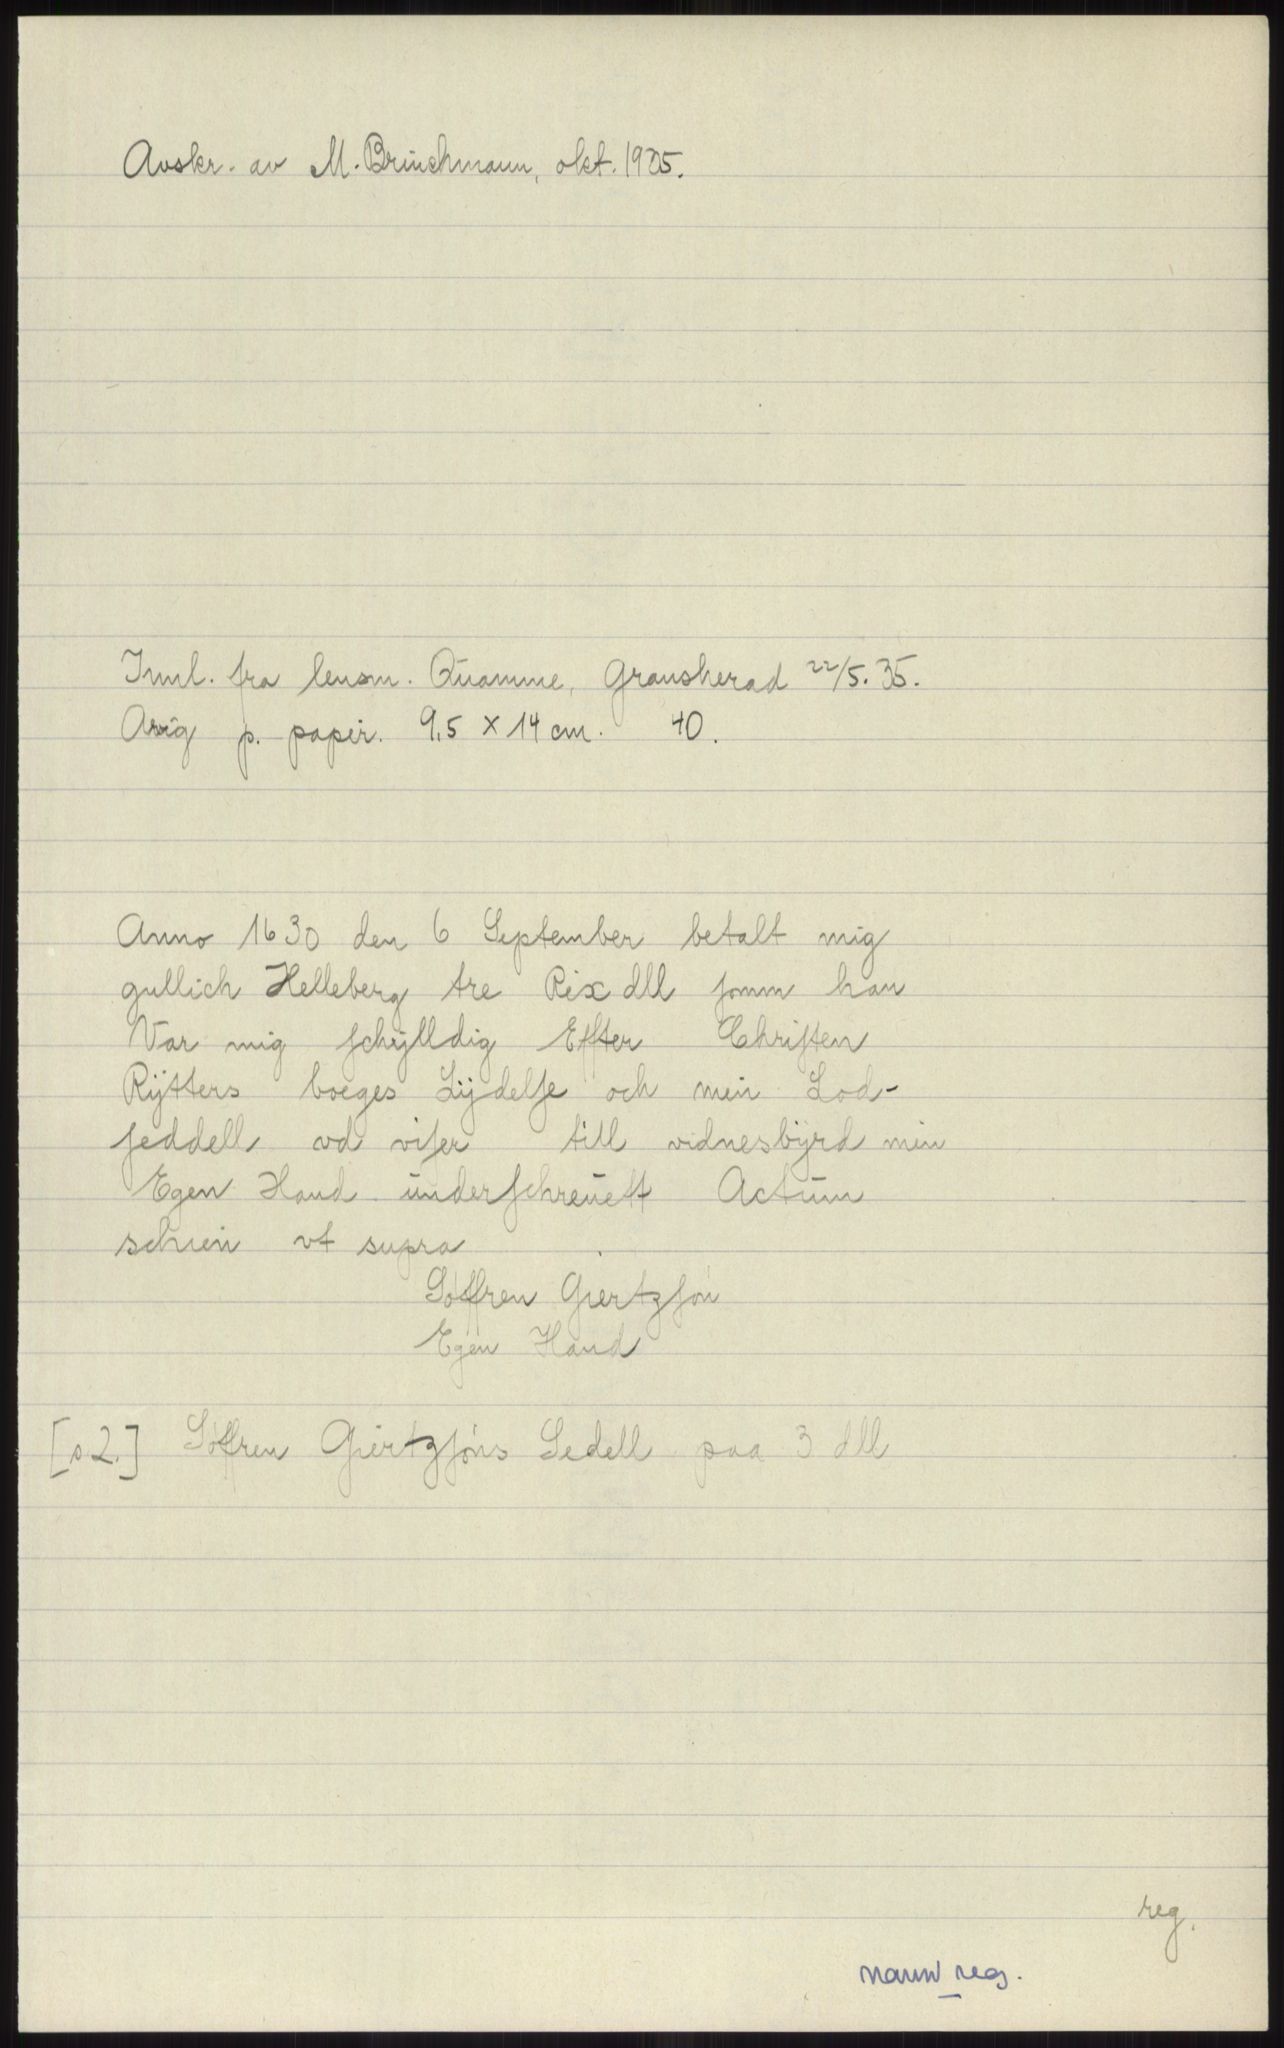 Avskr. av M. Brinchmann, okt. 1935.
Innl. fra lensm. Quamme, Gransherad 22/5. 35.
Orig p. papir. 9,5 x 14 cm. 40.
Anno 1630 den 6 September betalt mig
gullich Helleberg tre Rix dll somm han
Var mig schÿlldig Effter Christen
Rÿtters boeges Lÿdelse och mein Lod-
seddell vd viser till vidnesbÿrd min
Egen Hand underschreuett Actum
schien vt supra
Söffren Giertzsön
Egen Hand
[s 2.] Söffren Giertzsöns Sedell paa 3 dll
reg.
navn reg.